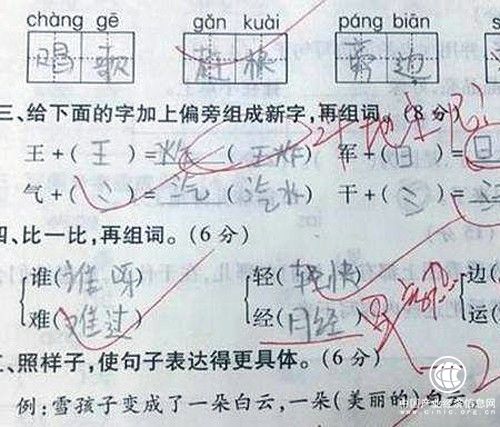 chàng gē gǎn kuài páng biān
唱歌 赶快 旁边
三、给下面的字加上偏旁组成新字,再组词。(8分)
王+(王)= (王炸) 军+(日)=
气+(氵)=汽(汽水) 干+(氵)=
四、比一比,再组词。(6分)
谁(谁呀) 轻(轻快) 边(
难(难过) 经(月经) 运(
五、照样子,使句子表达得更具体。(6分)
例:雪孩子变成了一朵白云,一朵(美丽的)白云
中国产业经济信息网
www.cinic.org.cn